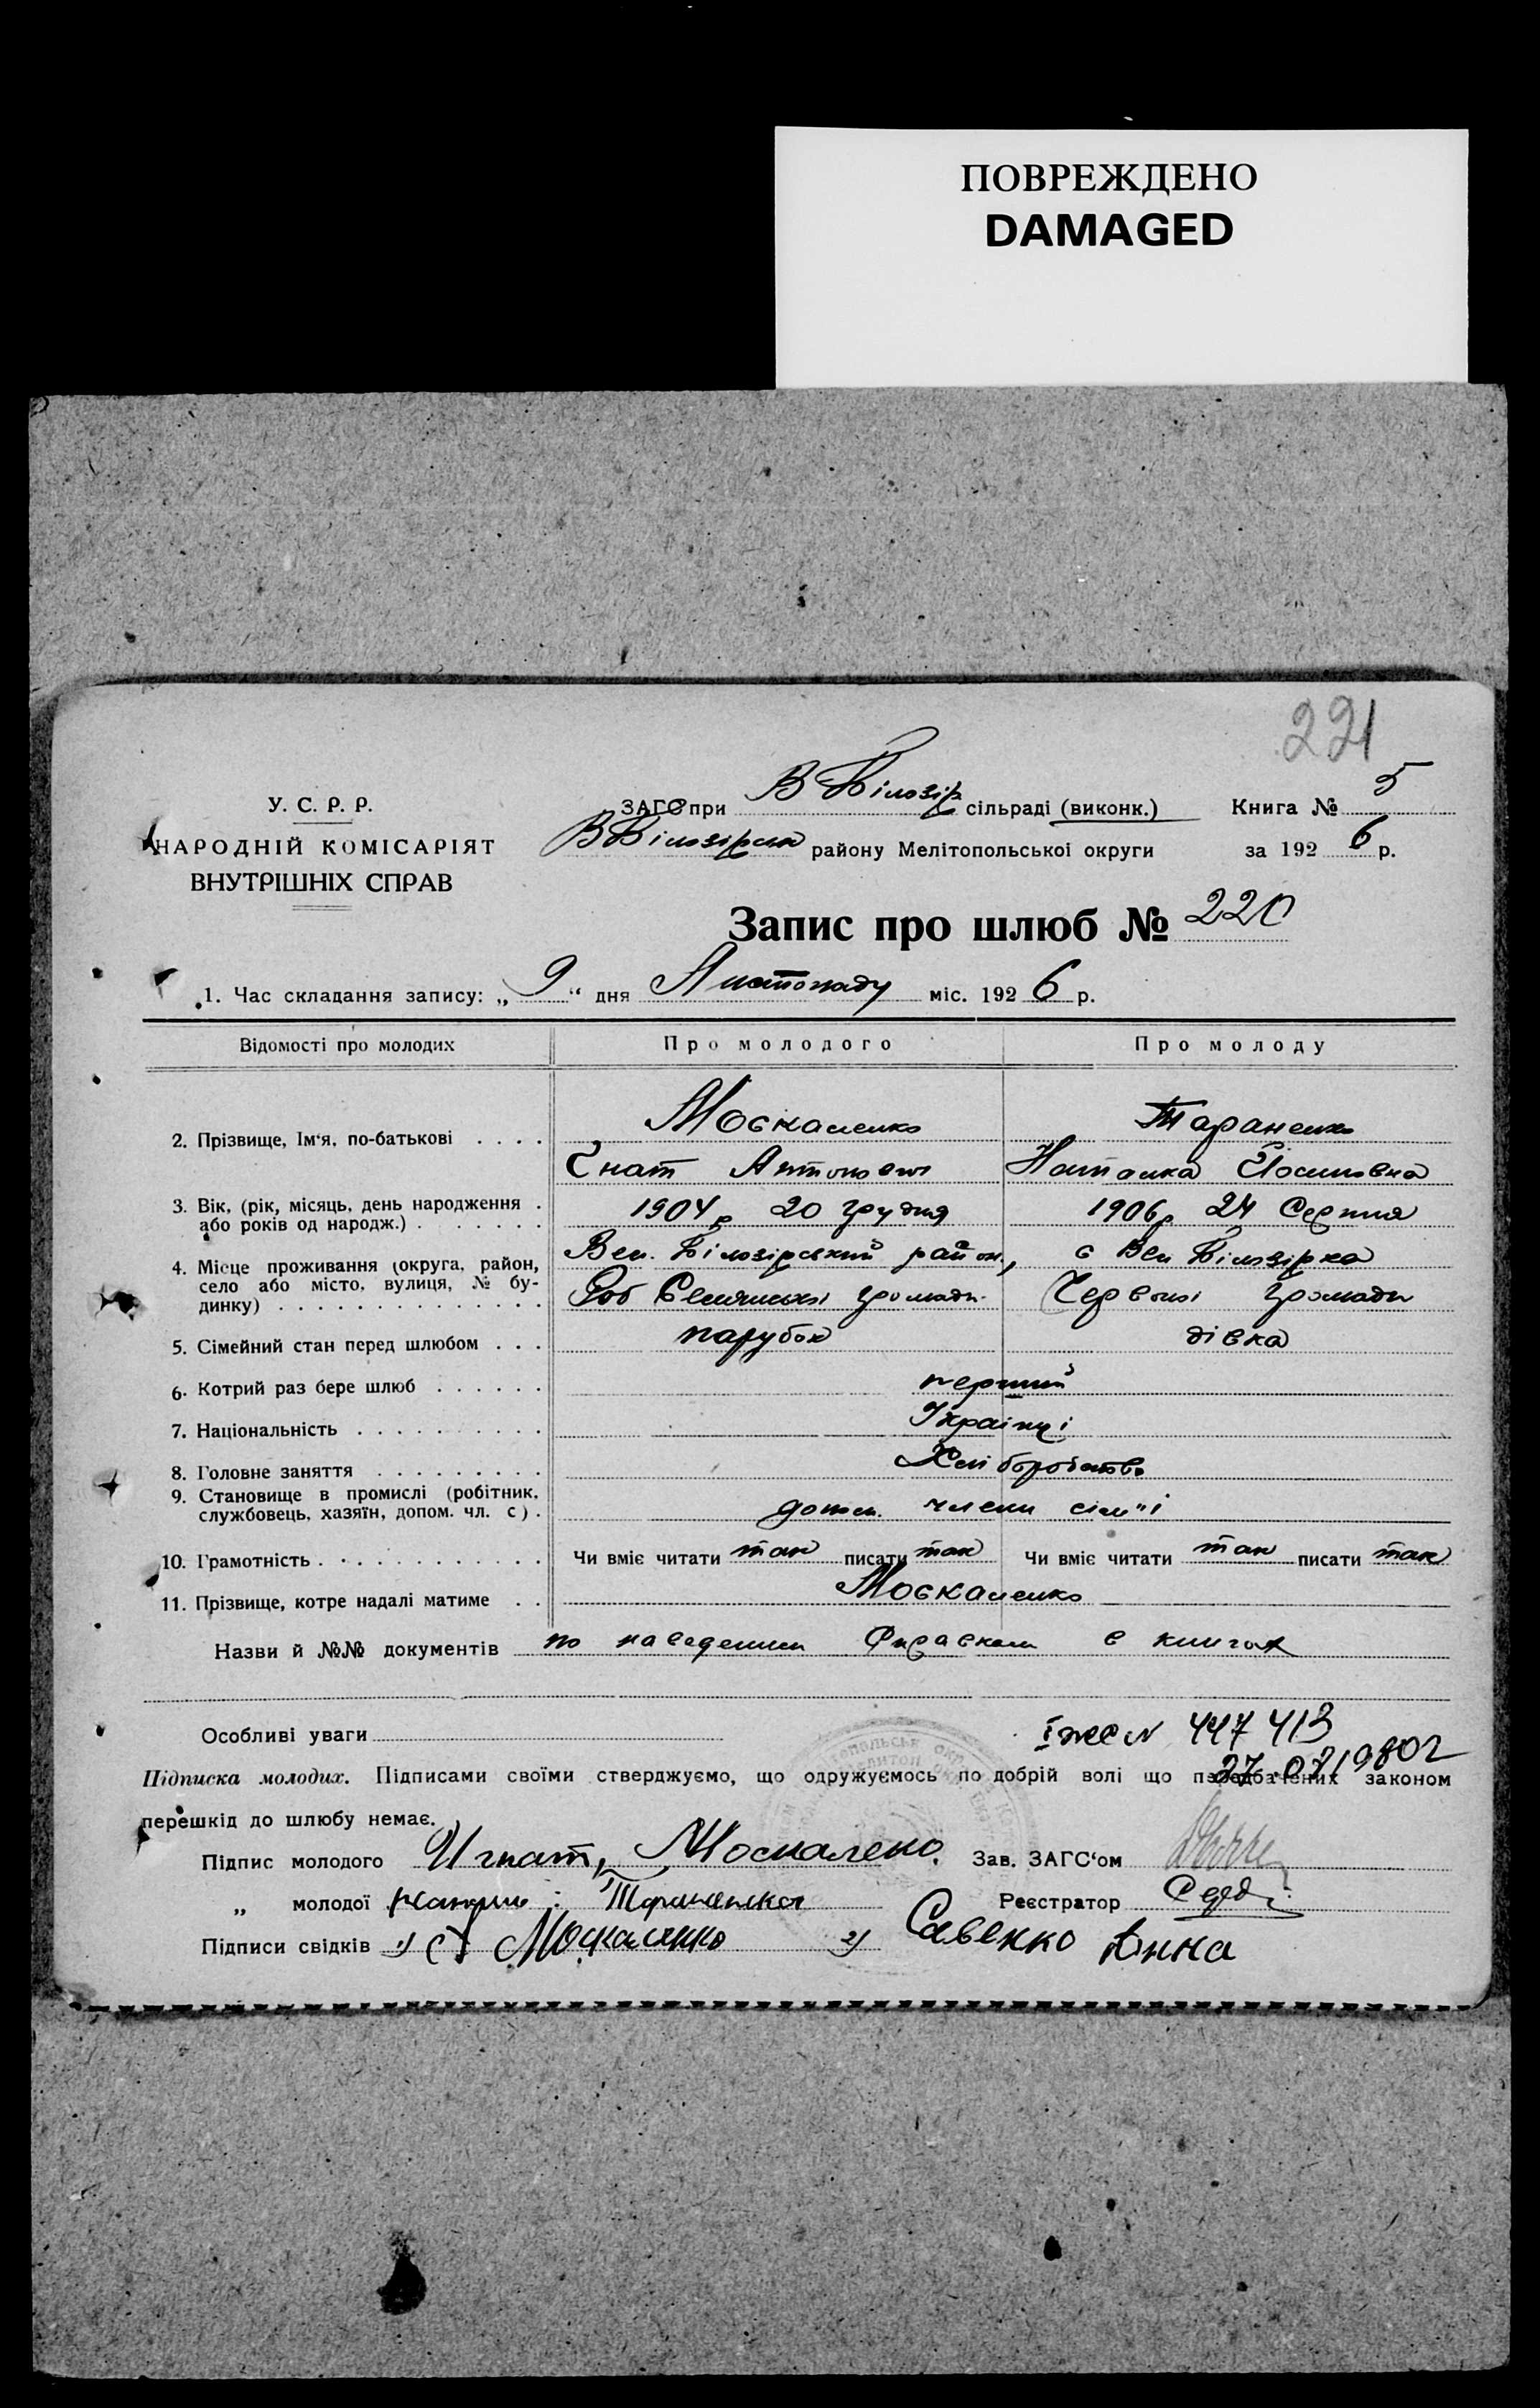 ПОВРЕЖДЕНО
DAMAGED
221
У. С. Р. Р.
НАРОДНІЙ КОМІСАРІЯТ
ВНУТРІШНІХ СПРАВ
ЗАГС при В Білозір. сільраді (виконк.) Книга № 5
В Білозірськ району Мелітопольської округи за 1926 р.
Запис про шлюб № 220
1. Час складання запису: „9“ дня Листопаду міс. 1926 р.
Відомості про молодих Про молодого Про молоду
2. Прізвище, Ім‘я, по-батькові . . . . Москаленко Тараненко
Гнат Антонович Наталка Йосиповна
3. Вік, (рік, місяць, день народження . або років од народж.) . . . . . . . 1904 р 20 грудня 1906 р 24 Серпня
4. Місце проживання (округа, район, село або місто, вулиця, № будинку) . . . . . . . . . . . . . . Вел. Білозірський район, с Вел Білозірка
Роб Селянської громади Червоної громади
5. Сімейний стан перед шлюбом . . . парубок дівка
6. Котрий раз бере шлюб . . . . . . перший
7. Національність . . . . . . . . . . Українці
8. Головне заняття . . . . . . . . . Хліборобство
9. Становище в промислі (робітник, службовець, хазяїн, допом. чл. с) . допом. члени сім"ї
10. Грамотність . . . . . . . . . . . . Чи вміє читати так писати так Чи вміє читати так писати так
11. Прізвище, котре надалі матиме . . Москаленко
Назви й №№ документів по наведеним справкам в книгах
Особливі уваги I жс № 447413
27.07.1980г
Підписка молодих. Підписами своїми стверджуємо, що одружуємось по добрій волі що передбачених законом
перешкід до шлюбу немає.
Підпис молодого Игнат, Москалено. Зав. ЗАГС‘ом
„ молодої Тараненко Реєстратор
Підписи свідків 1) Москаленко 2) Савенко Анна